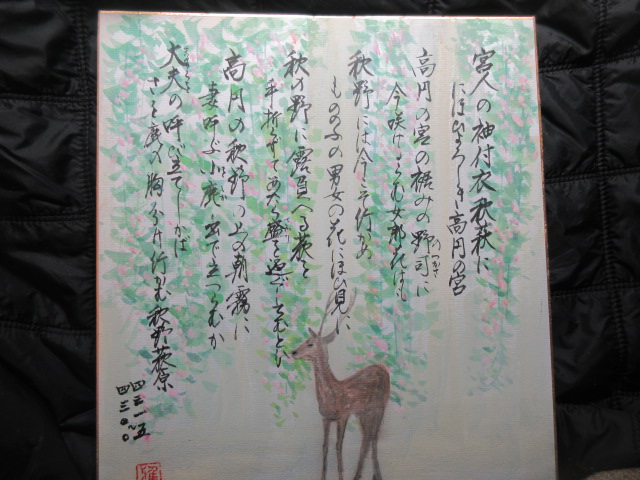 宮人の袖付衣秋萩に
にほひよろしき高円の宮
高円の宮の裾みの野司に
のつかさ
今咲けるらむ女郎花はも
秋野には今こそ行かめ
ものゝふの男女の花にほひ見に
秋の野に露負へる萩を
手折らずてあたら盛を過ぐしてむとか
高円の秋野の上の朝霧に
妻呼ぶ小鹿出で立つらむか
大夫の呼び立てしかば
さを鹿の胸分け行かむ秋野萩原
四三一五〜
四三二〇